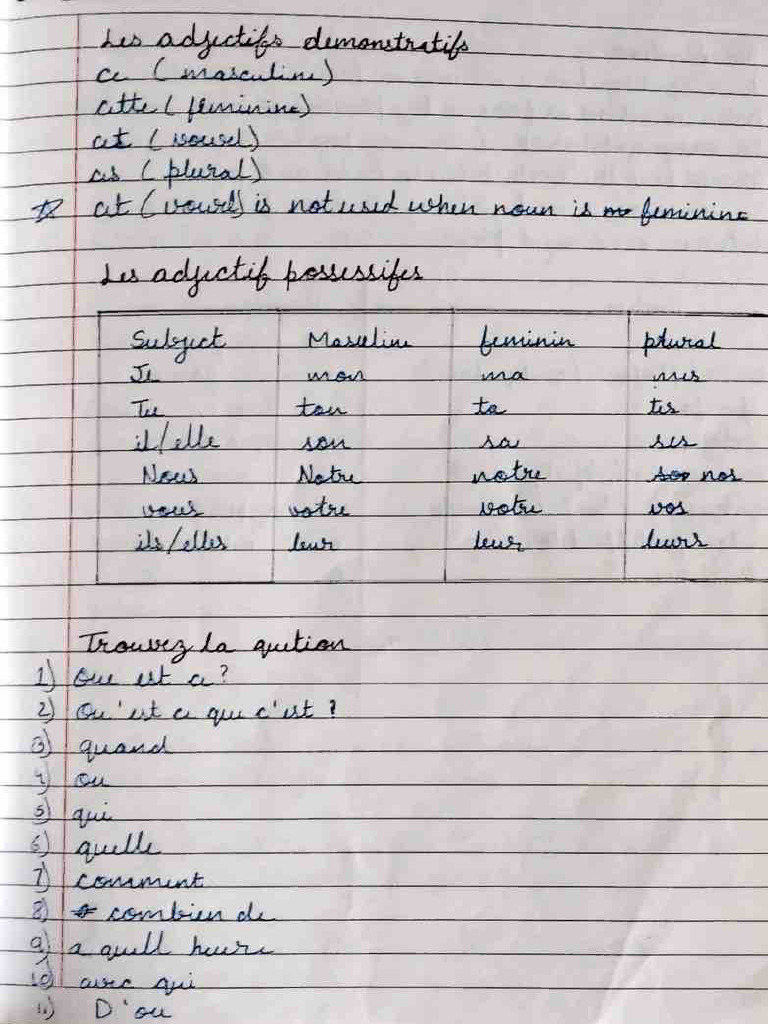 Les adjectifs demonstratifs
ce (masculine)
cette (feminine)
cet (vowel)
ces (plural)
cet (vowel) is not used when noun is feminine
Les adjectif possessifes
Subject Masculine feminin plural
Je mon ma mes
Tu ton ta tes
il/elle son sa ses
Nous Notre notre nos
vous votre votre vos
ils/elles leur leur leurs
Trouvez la qution
1) Que est ce?
2) Qu'est ce que c'est ?
3) quand
4) ou
5) qui
6) quelle
7) comment
8) combien de
9) a quell heure
10) avec qui
11) D'ou